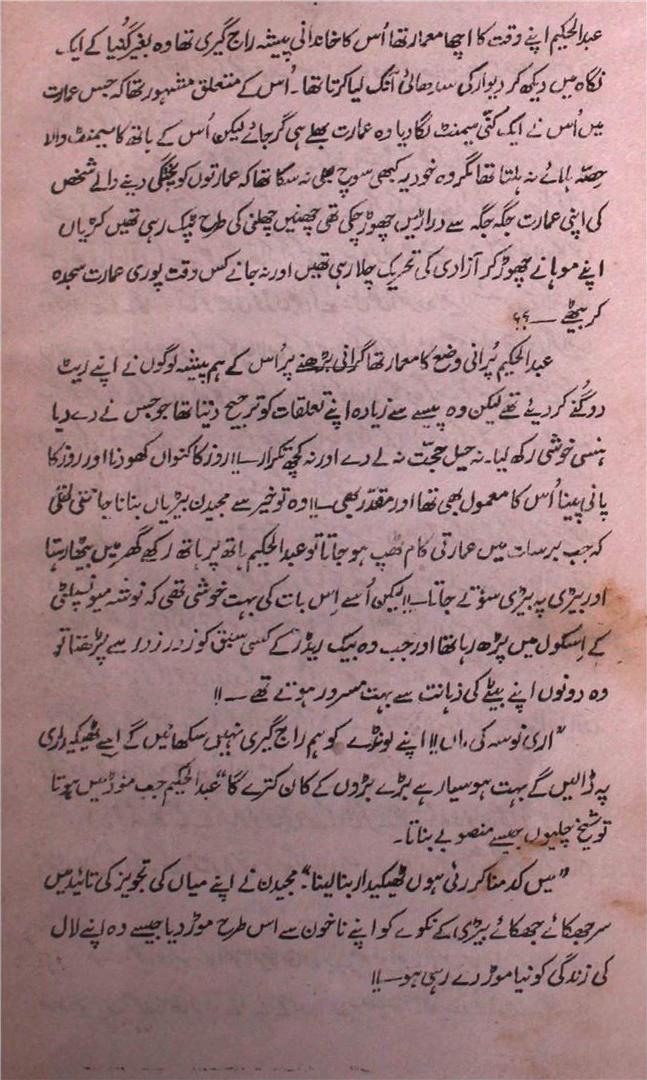 عبدالحکیم اپنے وقت کا اچھا معمار تھا اُس کا خاندانی پیشہ راج گیری تھا وہ بغیر گُنیا کے ایک
نگاہ میں دیکھ کر دیوار کی سدھائی آنک لیا کرتا تھا۔ اُس کے متعلق مشہور تھا کہ جس عمارت
میں اُس نے ایک کنّی سیمنٹ لگا دیا وہ عمارت بھلے ہی گر جائے لیکن اُس کے ہاتھ کا سیمنٹ والا
حِصّہ ہلائے نہ ہلتا تھا مگر وہ خود یہ کبھی سوچ بھی نہ سکا تھا کہ عمارتوں کو پختگی دینے والے شخص
کی اپنی عمارت جگہ جگہ سے دراڑیں چھوڑ چکی تھی چھتیں چھلنی کی طرح ٹپک رہی تھیں کڑیاں
اپنے موہانے چھوڑ کر آزادی کی تحریک چلا رہی تھیں اور نہ جانے کس وقت پوری عمارت سجدہ
کر بیٹھے — ؟؟
عبدالحکیم پُرانی وضع کا معمار تھا گرانی بڑھنے پر اُس کے ہم پیشہ لوگوں نے اپنے ریٹ
دوگنے کر دیئے تھے لیکن وہ پیسے سے زیادہ اپنے تعلقات کو ترجیح دیتا تھا جو جس نے دے دیا
ہنسی خوشی رکھ لیا۔ نہ حیل حجّت نہ لے دے اور نہ کچھ تکرار —!! روز کا کنواں کھودنا اور روز کا
پانی پینا اُس کا معمول بھی تھا اور مقدّر بھی —!! وہ تو خیر سے مجیدن بیڑیاں بنانا جانتی تھی
کہ جب برسات میں عمارتی کام ٹھپ ہو جاتا تو عبدالحکیم ہاتھ پر ہاتھ رکھے گھر میں بیٹھا رہتا
اور بیڑی پہ بیڑی سوتے جاتا —!! لیکن اُسے اِس بات کی بہت خوشی تھی کہ نوشہ میونسپلٹی
کے اِسکول میں پڑھ رہا تھا اور جب وہ بیک ریڈر کے کسی سبق کو زور زور سے پڑھتا تو
وہ دونوں اپنے بیٹے کی ذہانت سے بہت مسرور ہوتے تھے —!!
"اری نوسہ کی ماں!! اپنے لونڈے کو ہم راج گیری نہیں سکھائیں گے اِسے ٹھیکیداری
پہ ڈالیں گے بہت ہوسیار ہے بڑے بڑوں کے کان کترے گا" عبدالحکیم جب موڈ میں ہوتا
تو شیخ چلیوں جیسے منصوبے بناتا۔
"میں کد منا کر رئی ہوں ٹھیکیدار بنا لینا۔" مجیدن نے اپنے میاں کی تجویز کی تائید میں
سر جھکائے جھکائے بیڑی کے نکوے کو اپنے ناخون سے اس طرح موڑ دیا جیسے وہ اپنے لال
کی زندگی کو نیا موڑ دے رہی ہو —!!